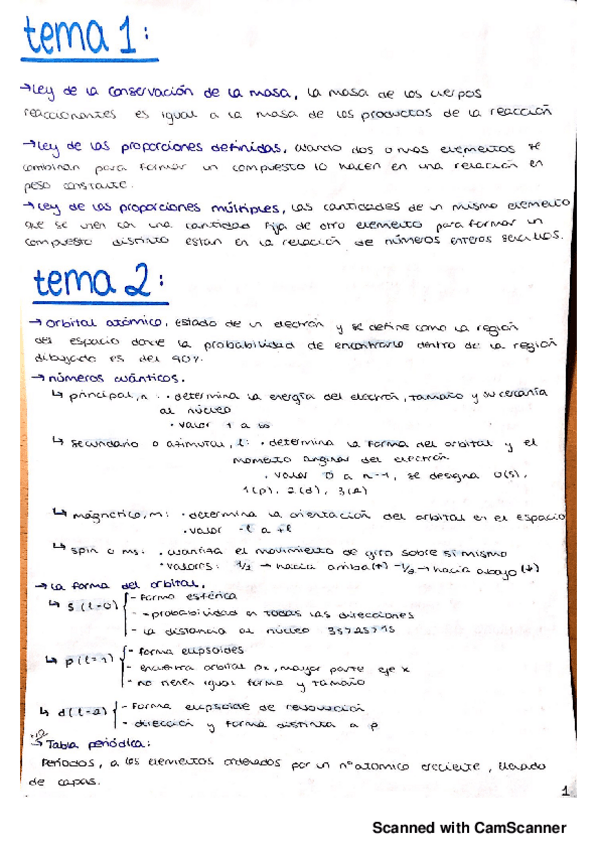 tema 1:
→ Ley de la conservación de la masa, la masa de los cuerpos
reaccionantes es igual a la masa de los productos de la reacción
→ Ley de las proporciones definidas, cuando dos o más elementos se
combinan para formar un compuesto lo hacen en una relación en
peso constante.
→ Ley de las proporciones múltiples, las cantidades de un mismo elemento
que se unen con una cantidad fija de otro elemento para formar un
compuesto distinto están en la relación de números enteros sencillos.
tema 2:
→ orbital atómico, estado de un electrón y se define como la región
del espacio donde la probabilidad de encontrarlo dentro de la región
dibujada es del 90%.
→ números cuánticos.
↳ principal, n: · determina la energía del electrón, tamaño y su cercanía
al núcleo
· valor 1 a ∞
↳ secundario o azimutal, l: · determina la forma del orbital y el
momento angular del electrón.
· valor 0 a n-1, se designa 0(s),
1(p), 2(d), 3(f)
↳ magnético, m: · determina la orientación del orbital en el espacio
· valor -l a +l
↳ spin o ms: · cuantiza el movimiento de giro sobre sí mismo
· valores: 1/2 → hacia arriba(↑) -1/2 → hacia abajo(↓)
→ La forma del orbital.
↳ s (l=0) - forma esférica
- = probabilidad en todas las direcciones
- la distancia al núcleo 3s>2s>1s
↳ p (l=1) - forma elipsoides
- encuentra orbital px, mayor parte eje x
- no tienen igual forma y tamaño
↳ d (l=2) - forma elipsoide de revolución
- dirección y forma distinta a p
→ Tabla periódica:
Períodos, a los elementos ordenados por un nº atómico creciente, llenado
de capas.
1
Scanned with CamScanner